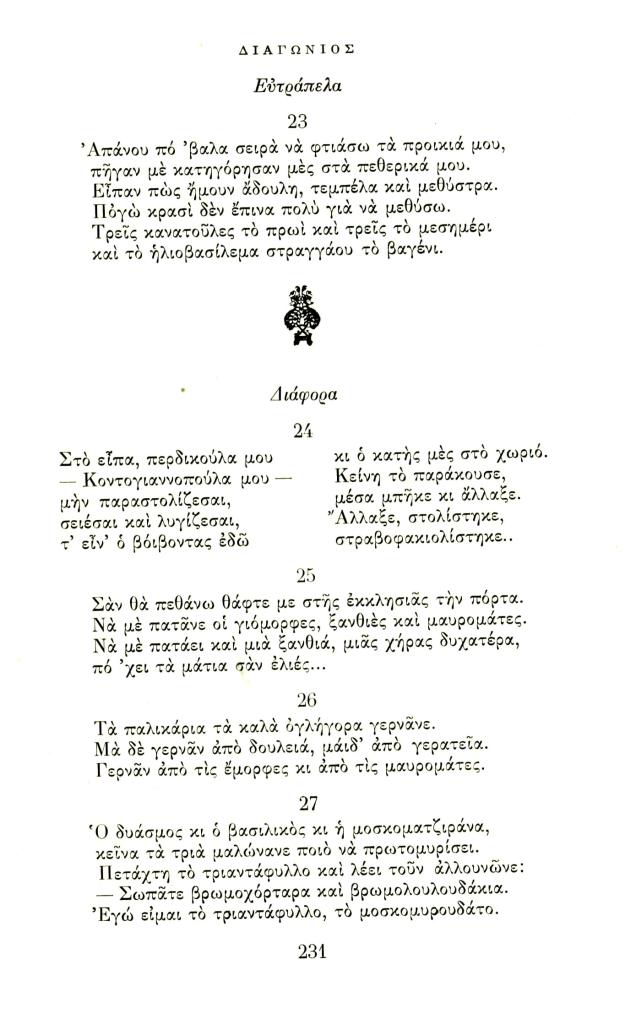 ΔΙΑΓΩΝΙΟΣ
Εὐτράπελα
23
Ἀπάνου πό 'βαλα σειρὰ νὰ φτιάσω τὰ προικιά μου,
πῆγαν μὲ κατηγόρησαν μὲς στὰ πεθερικά μου.
Εἶπαν πὼς ἤμουν ἄδουλη, τεμπέλα καὶ μεθύστρα.
Πόγὼ κρασὶ δὲν ἔπινα πολὺ γιὰ νὰ μεθύσω.
Τρεῖς κανατοῦλες τὸ πρωὶ καὶ τρεῖς τὸ μεσημέρι
καὶ τὸ ἡλιοβασίλεμα στραγγάου τὸ βαγένι.
Διάφορα
24
Στὸ εἶπα, περδικούλα μου
— Κοντογιαννοπούλα μου —
μὴν παραστολίζεσαι,
σειέσαι καὶ λυγίζεσαι,
τ' εἶν' ὁ βόιβοντας ἐδῶ
κι ὁ κατὴς μὲς στὸ χωριό.
Κείνη τὸ παράκουσε,
μέσα μπῆκε κι ἄλλαξε.
Ἄλλαξε, στολίστηκε,
στραβοφακιολίστηκε..
25
Σὰν θὰ πεθάνω θάφτε με στῆς ἐκκλησιᾶς τὴν πόρτα.
Νὰ μὲ πατᾶνε οἱ γιόμορφες, ξανθιὲς καὶ μαυρομάτες.
Νὰ μὲ πατάει καὶ μιὰ ξανθιά, μιᾶς χήρας δυχατέρα,
πό 'χει τὰ μάτια σὰν ἐλιές...
26
Τὰ παλικάρια τὰ καλὰ ὀγλήγορα γερνᾶνε.
Μὰ δὲ γερνᾶν ἀπὸ δουλειά, μάιδ' ἀπὸ γερατεῖα.
Γερνᾶν ἀπὸ τὶς ἔμορφες κι ἀπὸ τὶς μαυρομάτες.
27
Ὁ δυάσμος κι ὁ βασιλικὸς κι ἡ μοσκοματζιράνα,
κεῖνα τὰ τριὰ μαλώνανε ποιὸ νὰ πρωτομυρίσει.
Πετάχτη τὸ τριαντάφυλλο καὶ λέει τοῦν ἀλλουνῶνε:
— Σωπᾶτε βρωμοχόρταρα καὶ βρωμολουλουδάκια.
Ἐγώ εἰμαι τὸ τριαντάφυλλο, τὸ μοσκομυρουδάτο.
231